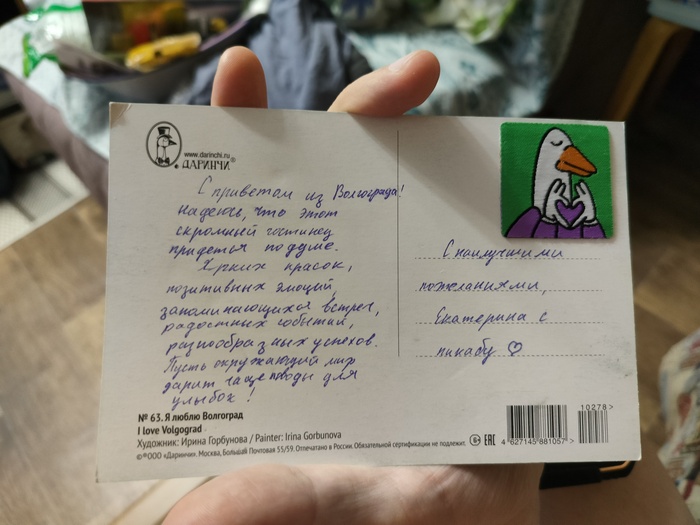 www.darinchi.ru
ДАРИНЧИ®
С приветом из Волгограда!
Надеюсь, что этот
скромный гостинец
придется по душе.
Ярких красок,
позитивных эмоций,
запоминающихся встреч,
радостных событий,
разнообразных успехов.
Пусть окружающий мир
дарит чаще поводы для
улыбок!
С наилучшими
пожеланиями,
Екатерина с
пикабу ♡
№ 63. Я люблю Волгоград
I love Volgograd
Художник: Ирина Горбунова / Painter: Irina Gorbunova
©®ООО «Даринчи». Москва, Большая Почтовая 55/59. Отпечатано в России. Обязательной сертификации не подлежит.
6+ EAC
4 627145 881057 >
10278 >